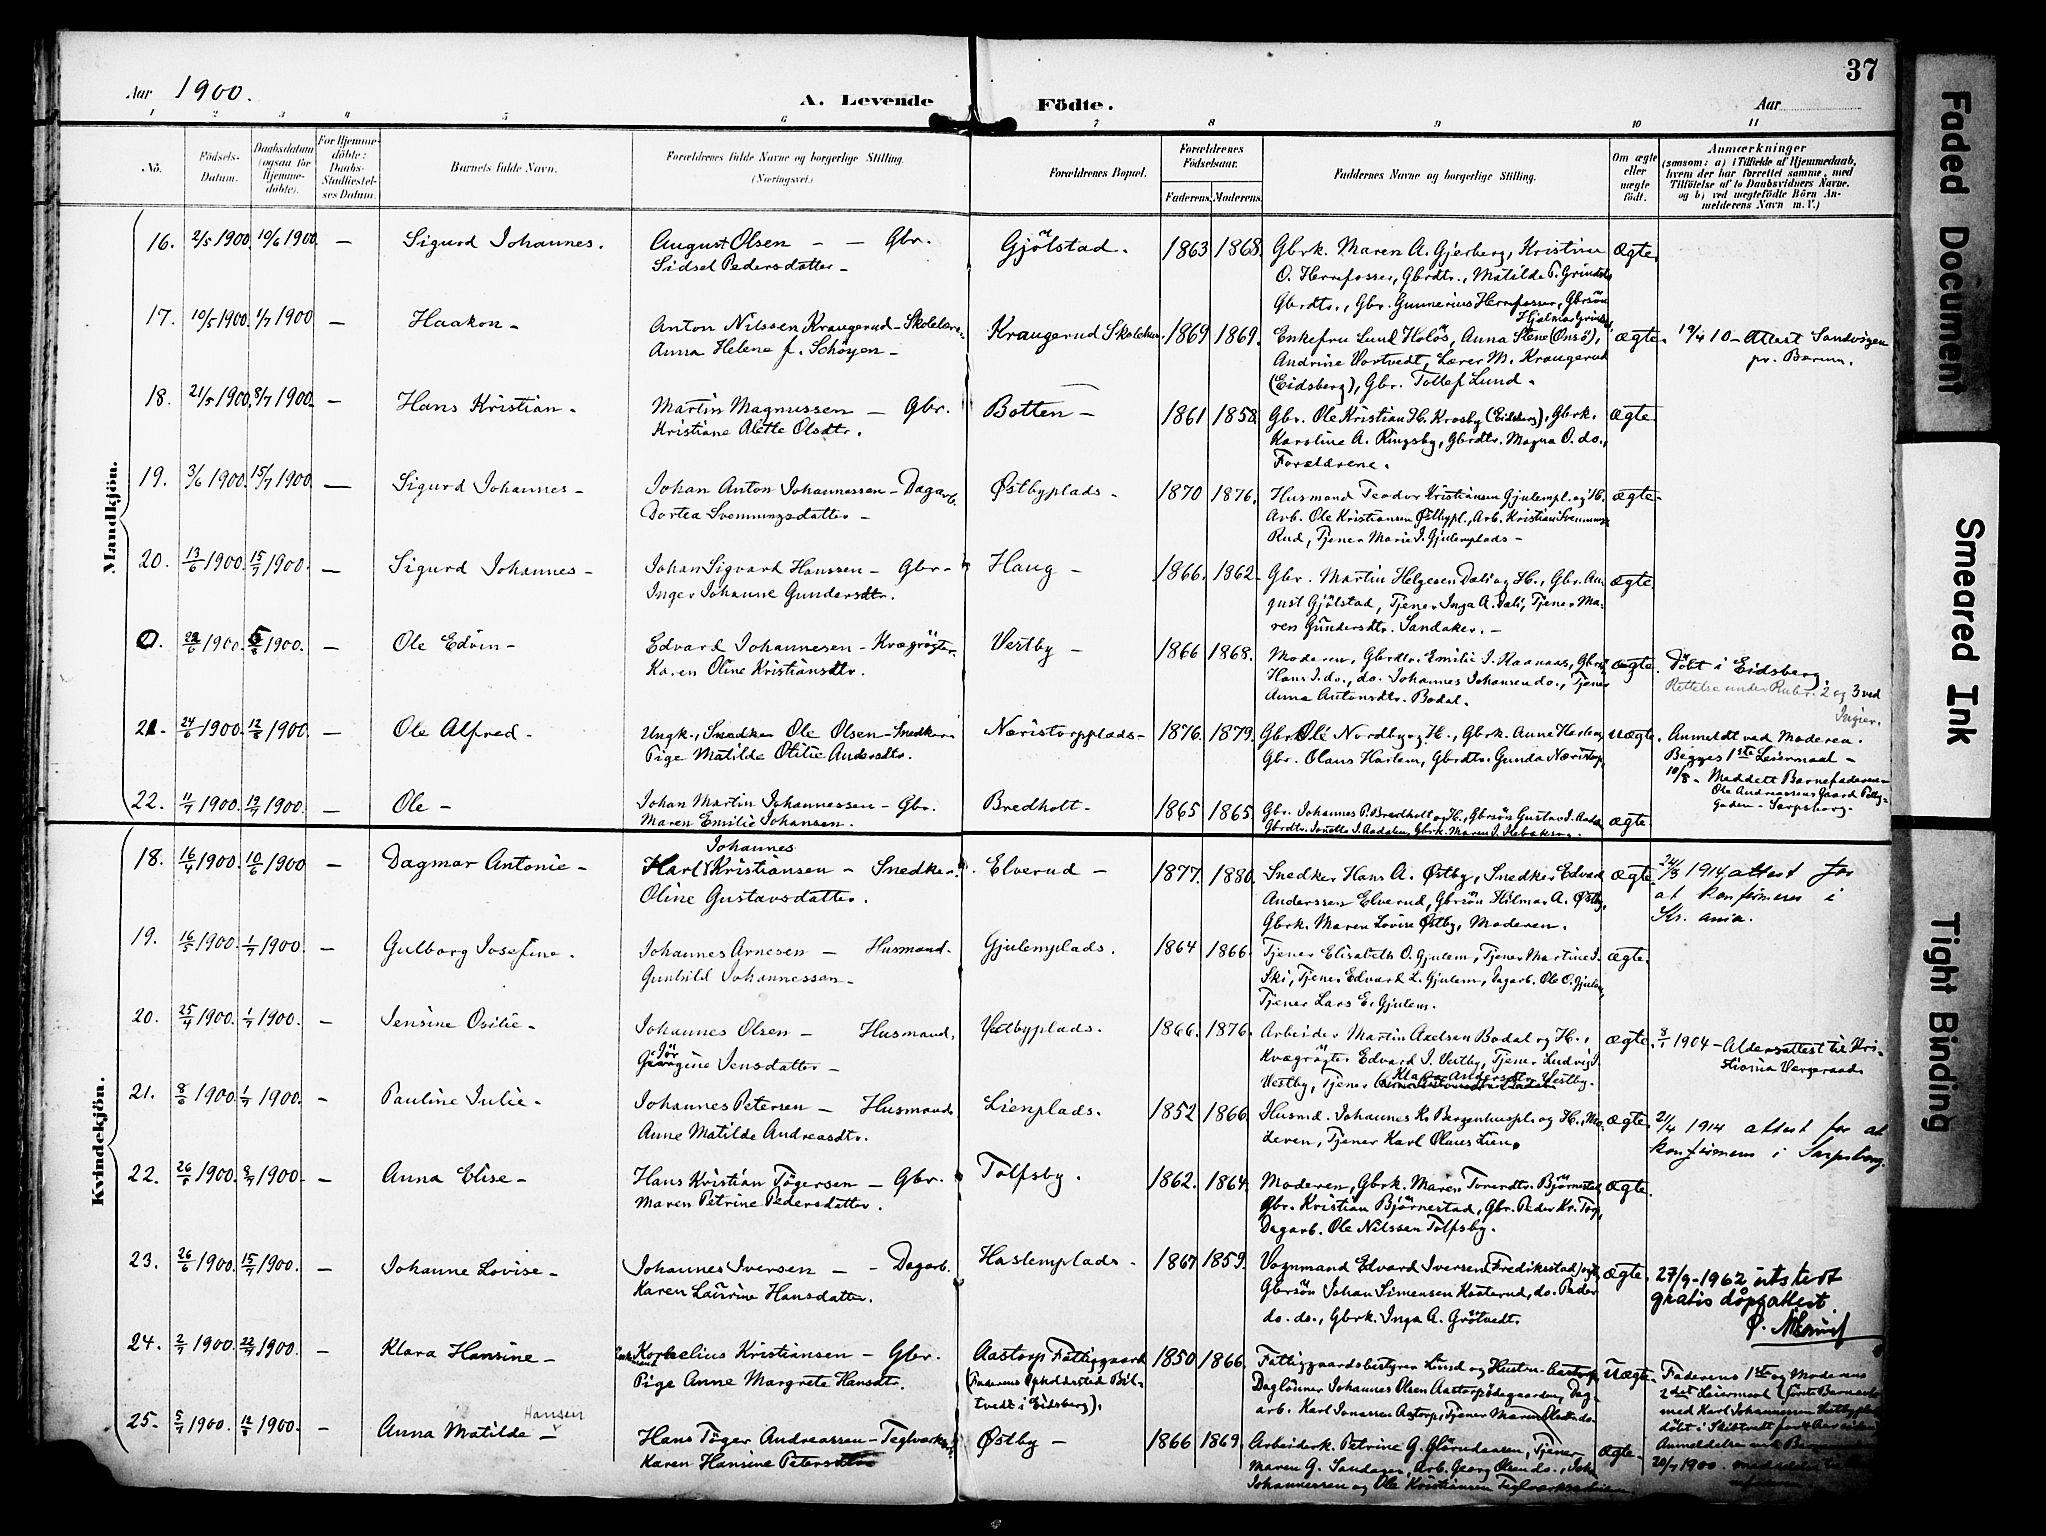 37
Aar 1900.
A. Levende Födte.
Aar
1 2 3 4 5 6 7 8 9 10 11
No.
Födsels-Datum.
Daabsdatum (ogsaa for Hjemme-döbte).
For Hjemme-döbte: Daabs-Stadfæstel-ses Datum.
Barnets fulde Navn.
Forældrenes fulde Navne og borgerlige Stilling. (Næringsvei.)
Forældrenes Bopæl.
Forældrenes Födselsaar.
Faderens. Moderens.
Faddernes Navne og borgerlige Stilling.
Om ægte eller uægte födt.
Anmærkninger
(saasom: a) i Tilfælde af Hjemmedaab, hvem der har forrettet samme, med Tilföielse af to Daabsvidners Navne. og b) ved uægtefödte Börn An-melderens Navn m. V.)
Mandkjön.
16. 2/5 1900. 10/6 1900. — Sigurd Johannes. August Olsen — — Gbr. Gjölstad. 1863 1868. Gbrk. Maren A. Gjerberg, Kristine ægte.
Sidsel Pedersdatter — O. Herrefosser, Gbrdtr., Matilde P. Grindst
Gbrdtr., Gbr. Gunnerius Herrefosser, Gbrsön
17. 10/5 1900. 1/7 1900 — Haakon — Anton Nilssen Kraugerud — Skolelærer Kraugerud Skolehus. 1869 1869. Enkefru Lund Holös, Anna Stene (Onsö), ægte. 19/4 10 — Attest Sandvigen
Anna Helene f. Schöyen — Andrine Vortvedt, Lærer M. Kraugerud pr. Bærum.
(Eidsberg), Gbr. Tollef Lund.
18. 21/5 1900. 8/7 1900. — Hans Kristian — Martin Magnussen — Gbr. Botten — 1861 1858. Gbr. Ole Kristian H. Krosby (Eidsberg), Gbrk. ægte.
Kristiane Alette Olsdtr. Karoline A. Ringsby, Gbrdtr. Magna O. do.,
Forældrene.
19. 3/6 1900. 15/7 1900. — Sigurd Johannes — Johan Anton Johannessen — Dagarb. Østbyplads. 1870 1876. Husmand Teodor Kristiansen Gjulempl. og H. ægte.
Dortea Svenningsdatter — Arb. Ole Kristiansen Østbypl., Arb. Kristian Svennings
Rud, Tjener Marie I. Gjulemplads —
20. 13/6 1900. 15/7 1900. — Sigurd Johannes — Johan Sigvard Hanssen — Gbr — Haug — 1866. 1862. Gbr. Martin Helgesen Dæli og H., Gbr. Au- ægte.
Inger Johanne Gundersdtr. gust Gjölstad, Tjener Inga A. Dæli, Tjener Ma-
ren Gundersdtr. Sandaker. —
0. 1900. 1900. — Ole Edvin — Edvard Johannesen — Kvægrögter Vestby — 1866 1868. Moderen, Gbrdtr. Emilie J. Raanaas, Gbrs. ægte. Döbt i Eidsberg.
Karen Oline Kristiansdtr. Hans J. do., do. Johannes Johansen do., Tjener Rettelse under Rubr. 2 og 3 ved
Anna Antonsdtr. Bodal. Ingier.
21. 24/6 1900. 12/8 1900. — Ole Alfred — Ungk., Snedker Ole Olsen — Snedker Næristorpplads — 1876. 1879. Gbr. Ole Nordby og H., Gbrk. Anne Harlem uægte. Anmeldt ved Moderen.
Pige Matilde Otilie Andersdtr. Gbr. Olaus Harlem, Gbrdtr. Gunda Næristorp. Begges 1ste Leiermaal —
10/8 — Meddelt Barnefaderen
Ole Andreassens Gaard
gaden — Sarpsborg.
22. 11/7 1900. 19/7 1900. — Ole — Johan Martin Johannessen — Gbr. Bredholt — 1865 1865. Gbr. Johannes P. Bredholt og H., Gbrsön Gustav J. Aadalen ægte.
Maren Emilie Johansen. Gbrdtr. Josette J. Aadalen, Gbrk. Maren J.
Kvindekjön.
18. 16/4 1900. 10/6 1900 — Dagmar Antonie — Karl Johannes Kristiansen — Snedker. Elverud — 1877. 1880. Snedker Hans A. Østby, Snedker Edvard ægte. 24/3 1914 attest for
Oline Gustavsdatter. Anderssen Elverud, Gbrsön Hilmar A. Østby, at konfirmeres i
Gbrk. Maren Lovise Østby, Moderen. Kr. ania.
19. 16/5 1900. 1/7 1900. — Gulborg Josefine. Johannes Arnesen — Husmand. Gjulemplads. 1864 1866. Tjener Elisabeth O. Gjulem, Tjener Martine I. ægte.
Gunhild Johannessen — Ski, Tjener Edvard L. Gjulem, Dagarb. Ole O. Gjulem,
Tjener Lars E. Gjulem.
20. 25/4 1900. 1/7 1900. — Jensine Osilie — Johannes Olsen — Husmand. Vestbyplads. 1866. 1876. Arbeider Martin Axelsen Bodal og H., ægte. 8/1 1904 — Aldersattest til Kri-
Jörgine Jensdatter — Kvægrögter Edvard I. Vestby, Tjener Ludvig I. stiania Vergeraad
Vestby, Tjener Klara Andersdtr. Vestby.
21. 8/6 1900. 1/7 1900. — Pauline Julie — Johannes Petersen — Husmand Lienplads. 1852 1866. Husmd. Johannes K. Borgenhuspl. og H., Mo- ægte. 21/4 1914 attest for at
Anne Matilde Andreasdtr. deren, Tjener Karl Olaus Lien. konfirmeres i Sarpsborg.
22. 1900. 8/7 1900. — Anna Elise — Hans Kristian Tögersen — Gbr. Tolfsby. 1862. 1864. Moderen, Gbrk. Maren Torerdtr. Björnestad, ægte.
Maren Petrine Pedersdatter. Gbr. Kristian Björnestad, Gbr. Peder Kr. Torp,
Dagarb. Ole Nilssen Tolfsby.
23. 26/6 1900. 15/7 1900. — Johanne Lovise — Johannes Iversen — — Dagarb. Haslemplads. 1867 1859. Vognmand Edvard Iversen (Fredrikstad) og H. ægte. 27/9-1962 utstedt
Karen Laurine Hansdatter. Gbrsön Johan Simensen Kosterud, do. Peder gratis dåpsattest.
do. do., Gbrk. Inga A. Grötvedt.
24. 2/7 1900. 22/7 1900. — Klara Hansine — Kornelius Kristiansen — Gbr. Aastorp Fattiggaard 1850 1866. Fattiggaardsbestyrer Lund og Hustru Aastorp, uægte. Faderens 1ste og Moderens
Pige Anne Margrete Hansdtr. (Faderens Opholdssted Bil- Daglönner Johannes Olsen Aastorpödegaarden, Dag- 2det Leiermaal (förste Barnefader
tvedt i Eidsberg). arb. Karl Jonassen Aastorp, Tjener Maren do. med Karl Johannesen Vestbyplads
döbt i Skibtvedt for 4 Aar siden
25. 5/7 1900. 12/8 1900. — Anna Matilde Hansen — Hans Töger Andreassen — Teglverksarb. Østby — 1866 1869. Arbeiderk. Petrine G. Glörudaasen, Tjener ægte. Anmeldelse
Karen Hansine Petersdtr Maren G. Sandaasen, Arb. Georg Olsen do., Joh. 20/7 1900.
Johannessen og Ole Kristiansen
Faded Document
Smeared Ink
Tight Binding